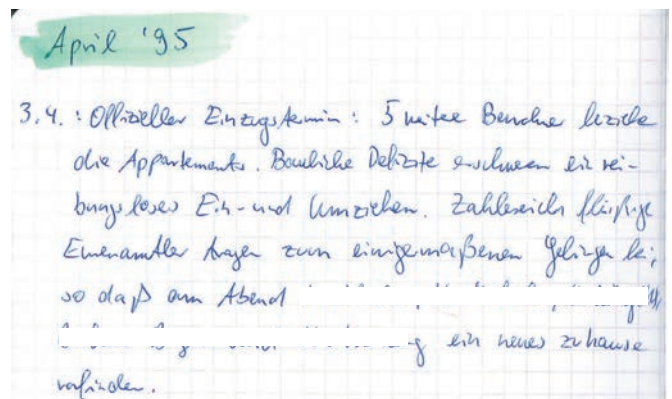 April '95
3.4.: Offizieller Einzugstermin: 5 weitere Bewohner beziehen
die Appartements. Bauliche Defizite erschweren ein rei-
bungsloses Ein- und Umziehen. Zahlreiche fleißige
Ehrenamtler tragen zum einigermaßenen Gelingen bei,
so daß am Abend
ein neues zuhause
vorfinden.